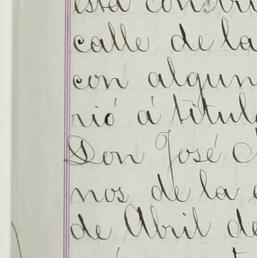 está constru
calle de la
con algun
rió á titul
Don José
nos de la
de Abril de